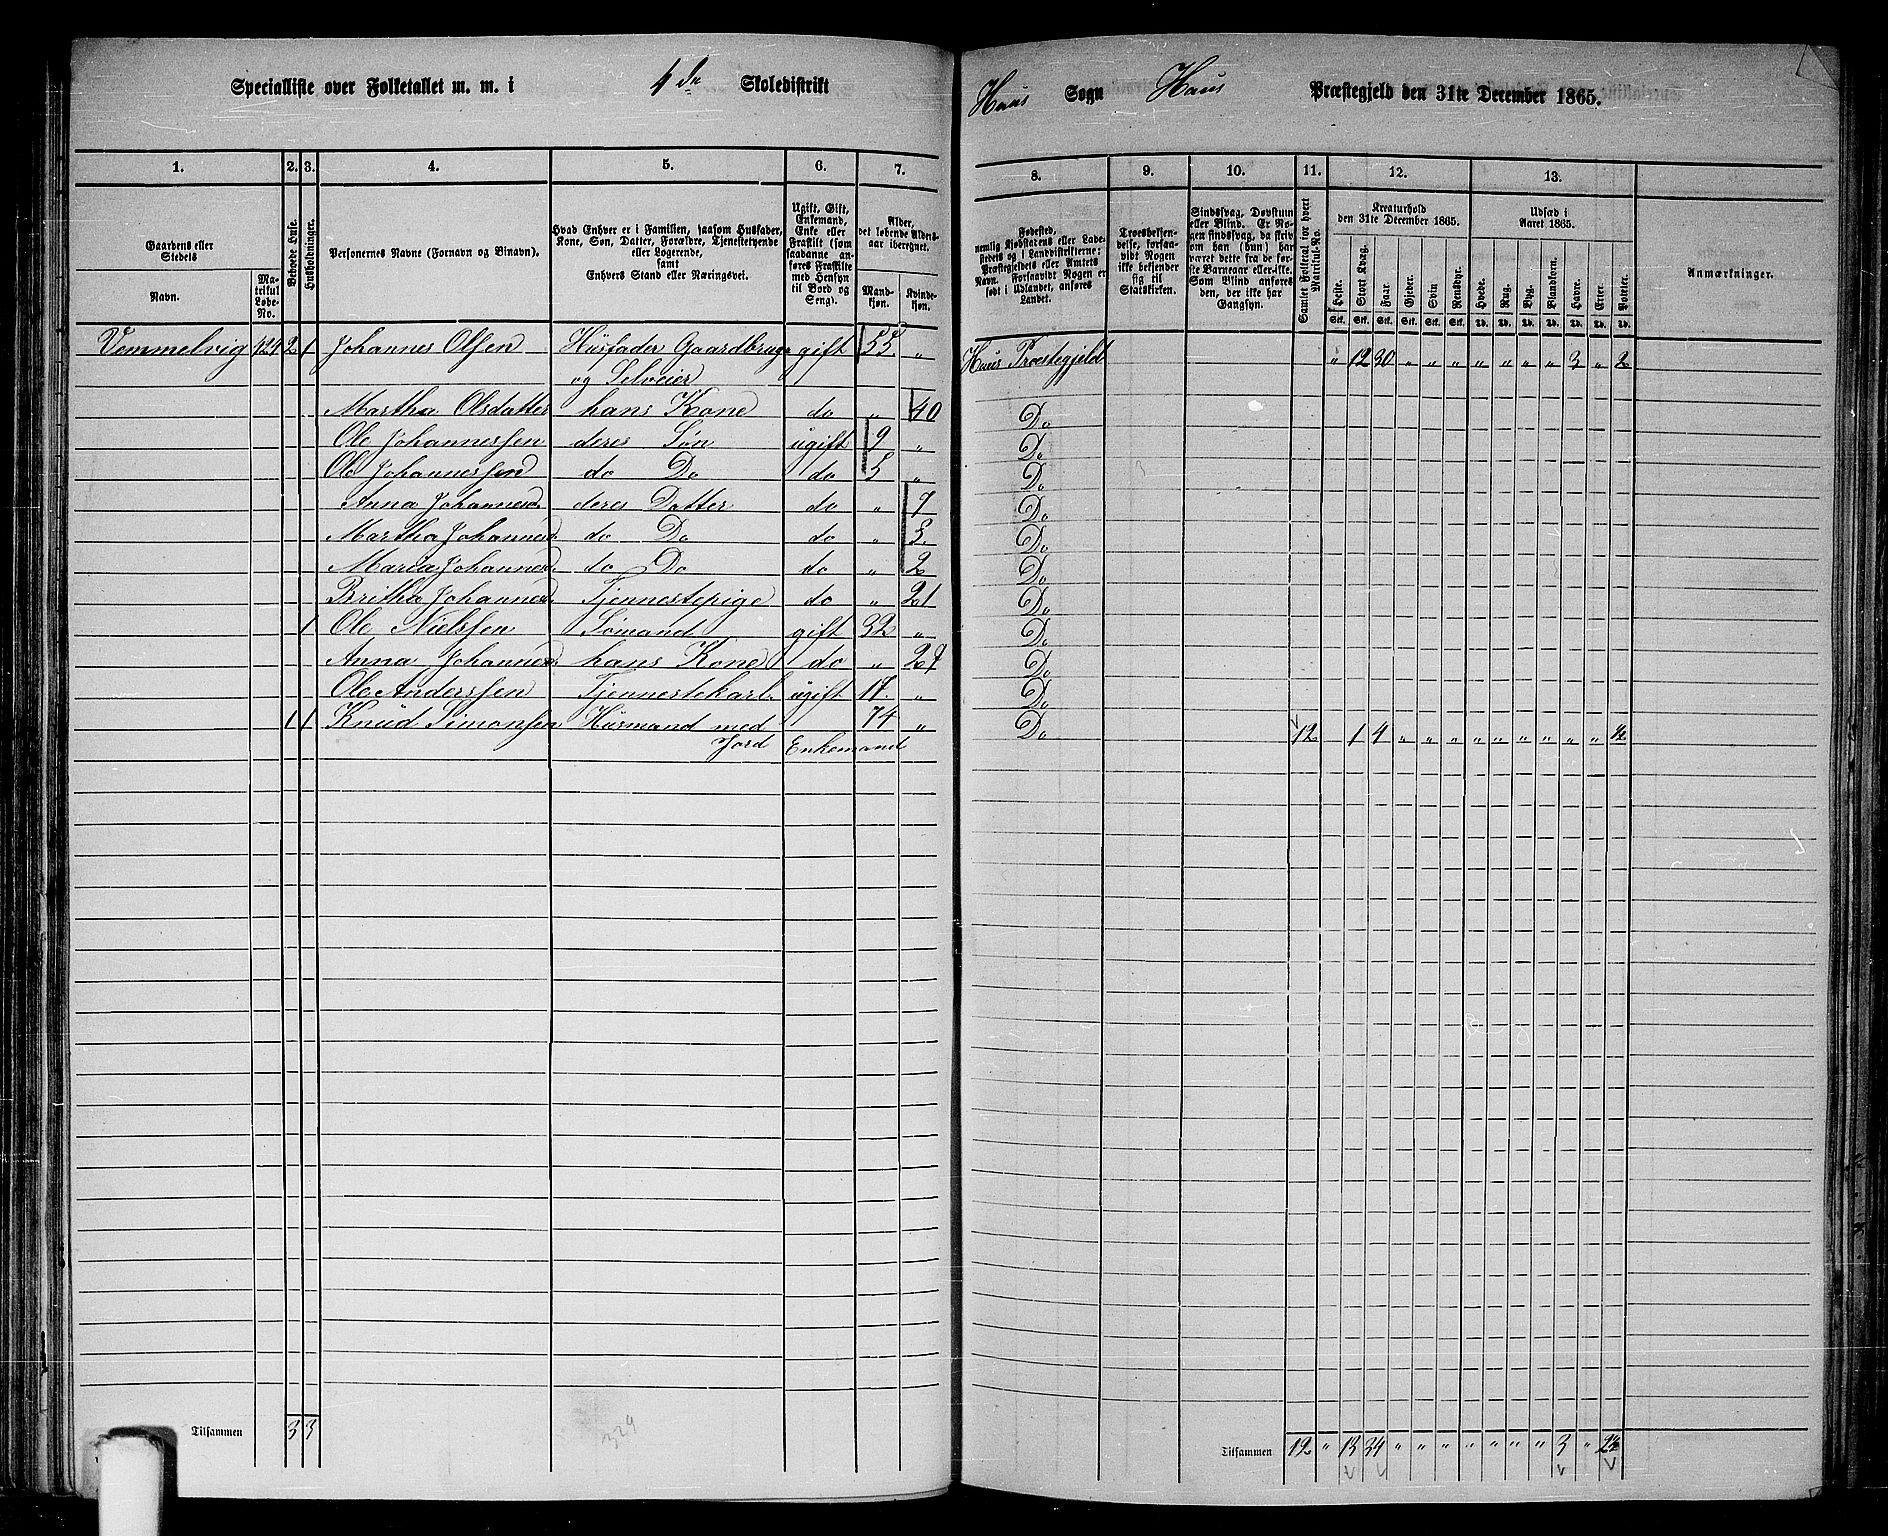 Specialliste over Folketallet m. m. i 4de Skoledistrikt
Haus Sogn Haus Præstegjeld den 31te December 1865.
1. 2. 3. 4. 5. 6. 7.
8. 9. 10. 11. 12. 13.
Gaardens eller Stedets
Navn.
Matrikul Løbe-No.
Beboede Huse.
Husholdninger.
Personernes Navne (Fornavn og Binavn).
Hvad Enhver er i Familien, saasom Husfader,
Kone, Søn, Datter, Forældre, Tjenestetyende
eller Logerende,
samt
Enhvers Stand eller Næringsvei.
Ugift, Gift,
Enkemand,
Enke eller
Fraskilt (som
saadanne anføres
Fraskilte
med Hensyn
til Bord og
Seng).
Alder,
det løbende Aldersaar
iberegnet.
Mandkjøn.
Kvindekjøn.
Fødested,
nemlig Kjøbstadens eller Ladestedets
og i Landdistrikterne:
Præstegjeldets eller Amtets
Forsaavidt Nogen er
født i Udlandet, anføres
Landet.
Troesbekjendelse,
forsaavidt
Nogen
ikke bekjender
sig til
Statskirken.
Sindssvag, Døvstum
eller Blind. Er Nogen
sindssvag, da skriv
om han (hun) har
været dette fra de første
Barneaar eller ikke.
Som Blind anføres
den, der ikke har
Gangsyn.
Samlet Folketal for hvert Matrikul-No.
Kreaturhold
den 31te December 1865.
Heste. Stort Kvæg. Faar. Gjeder. Svin Rensdyr.
Stk. Stk. Stk. Stk. Stk. Stk.
Udsæd i
Aaret 1865.
Hvede. Rug. Byg. Blandkorn. Havre. Erter. Poteter.
Td. Td. Td. Td. Td. Td. Td.
Anmærkninger.
Vemmelvig 121 2 1 Johannes Olsen Husfader Gaardbruger gift 55 „ Haus Præstegjeld „ 12 30 „ „ „ „ „ „ „ 3 „ 2
og Selveier
Martha Olsdatter hans Kone do „ 40 Do
Ole Johannessen deres Søn ugift 9 „ Do
Ole Johannessen do Do do 5 „ Do
Anna Johannesd. deres Datter do „ 7 Do
Martha Johannesd. do Do do „ 5 Do
Maria Johannesd. do Do do „ 2 Do
Britha Johannesd. Tjennestepige do „ 21 Do
1 Ole Nielssen Sømand gift 32 „ Do
Anna Johannesd. hans Kone do „ 27 Do
Ole Anderssen Tjennestekarl ugift 17. „ Do
1 1 Knud Simonsen Husmand med 74 „ Do 12 1 4 „ „ „ „ „ „ „ „ „ ½
Jord Enkemand
Tilsammen 3 3
329
Tilsammen 12 „ 13 34 „ „ „ „ „ „ „ 3 „ 2½